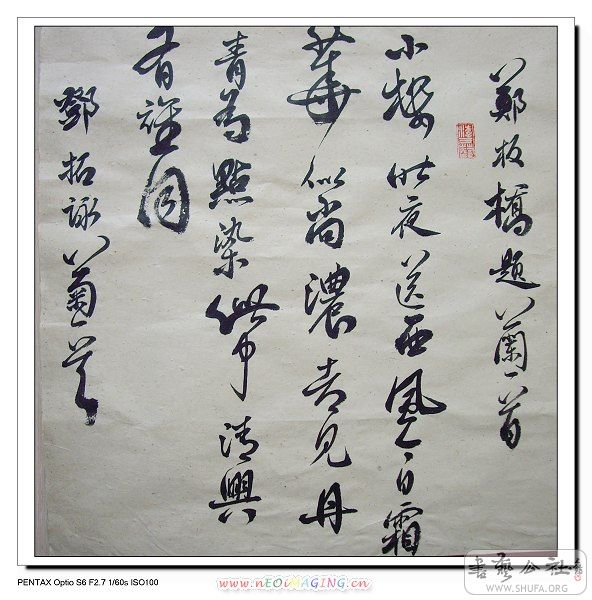 鄭板橋題蘭一首
小樓昨夜送西風白霜
華似尚濃見丹
青為點染清興
有誰同
鄧拓詠菊一首
書藝公社
WWW.SHUFA.ORG
PENTAX Optio S6 F2.7 1/60s ISO100
www.nEOiMAGING.cn